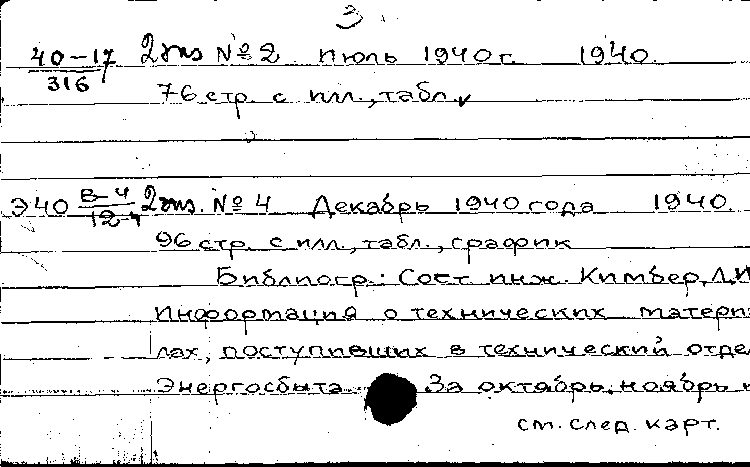 3.
40-17/316 2экз № 2 июль 1940 г. 1940.
76 стр. с илл., табл.
Э40 В-4/12-4 2экз. № 4 Декабрь 1940 года 1940.
96 стр. с илл., табл., график
Библиогр.: Сост. инж. Кимбер, Л.И
Информация о технических материа
лах, поступивших в технический отде
Энергосбыта За октябрь, ноябрь и
см. след. карт.